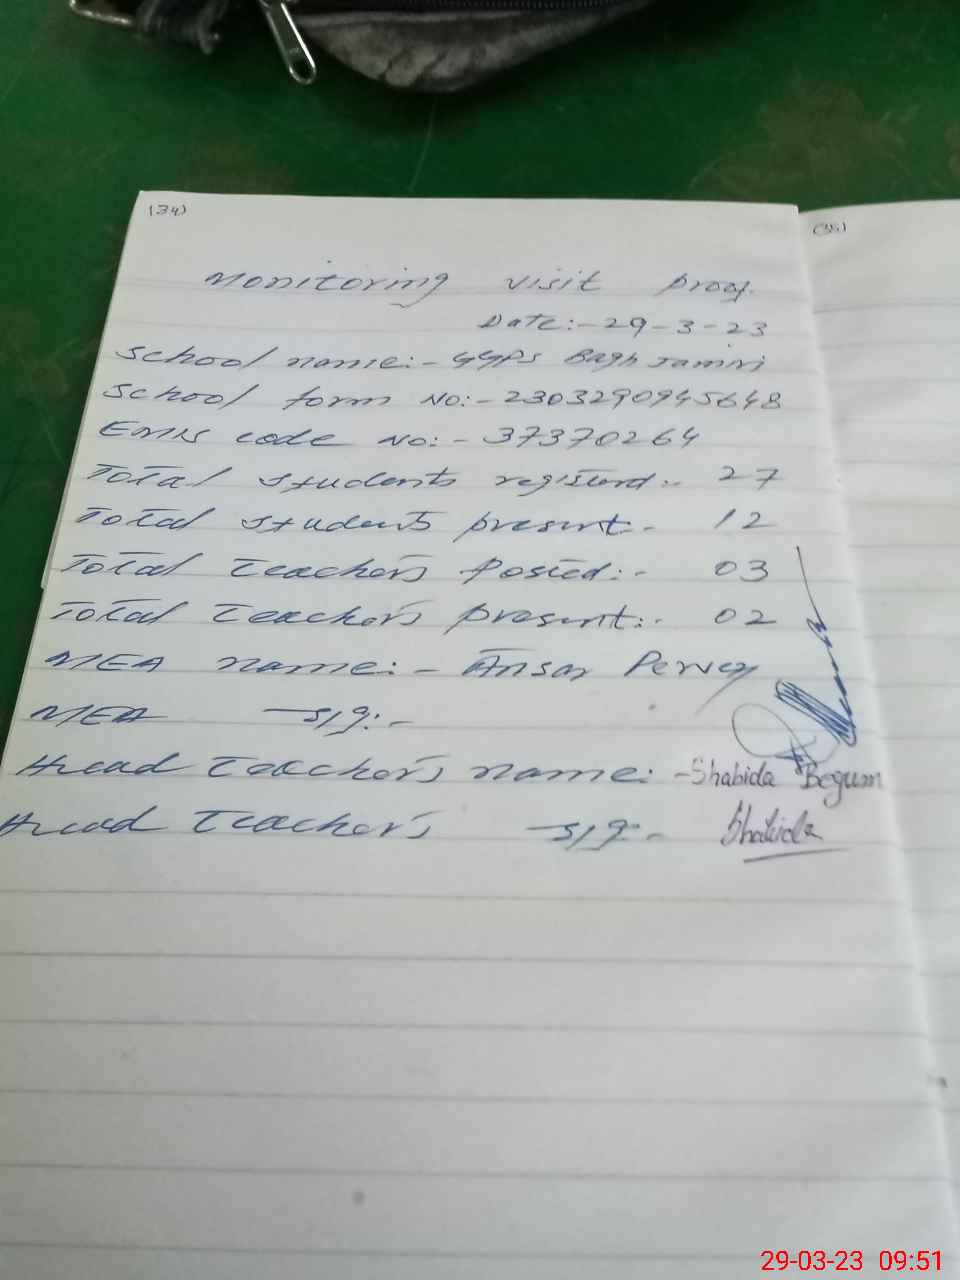 (34)
(35)
Monitoring visit proof.
Date:-29-3-23
School name:- GGPS Bagh Jamiri
School form No:-2303290945648
EMIS code No:-37370264
Total students registerd:- 27
Total students present:- 12
Total Teachers Posted:- 03
Total Teachers present:- 02
MEA name:- Ansar Pervez
MEA sig:-
Head Teacher's name:-Shabida Begum
Head Teacher's sig:- Shabida
29-03-23 09:51